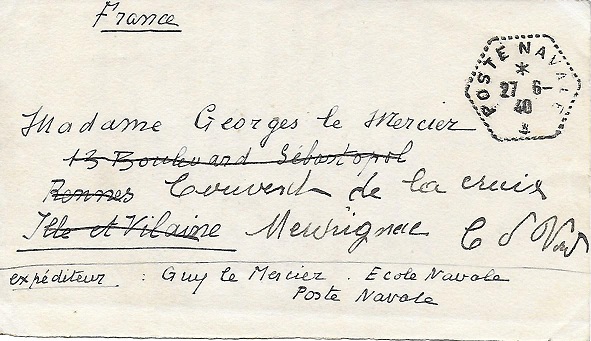 France
POSTE NAVALE
27 6-
40
Madame Georges le Mercier
13 Boulevard Sébastopol
Rennes Couvent de la croix
Ille et Vilaine Merdrignac C d Nord
expéditeur : Guy le Mercier . Ecole Navale
Poste Navale